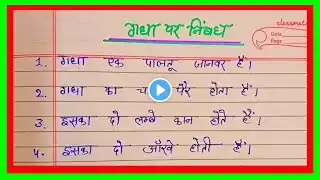 गधा पर निबंध
classmate
Date
Page
1. गधा एक पालतू जानवर है।
2. गधा का पैर होता है।
3. इसका दो लम्बे कान होते हैं।
4. इसका दो आँखें होती हैं।